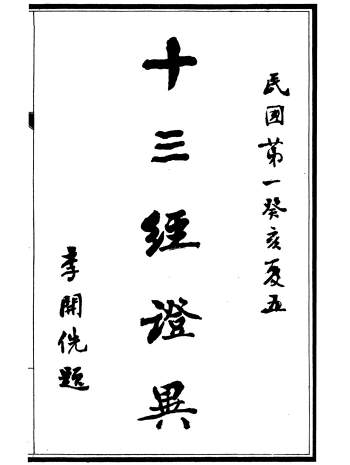 民國第一癸亥夏五
十三經證異
李開侁題